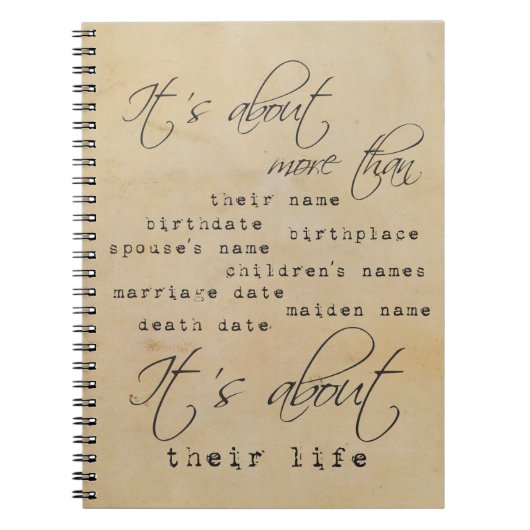 It's about
more than
their name
birthdate
birthplace
spouse's name
children's names
marriage date
maiden name
death date
It's about
their life